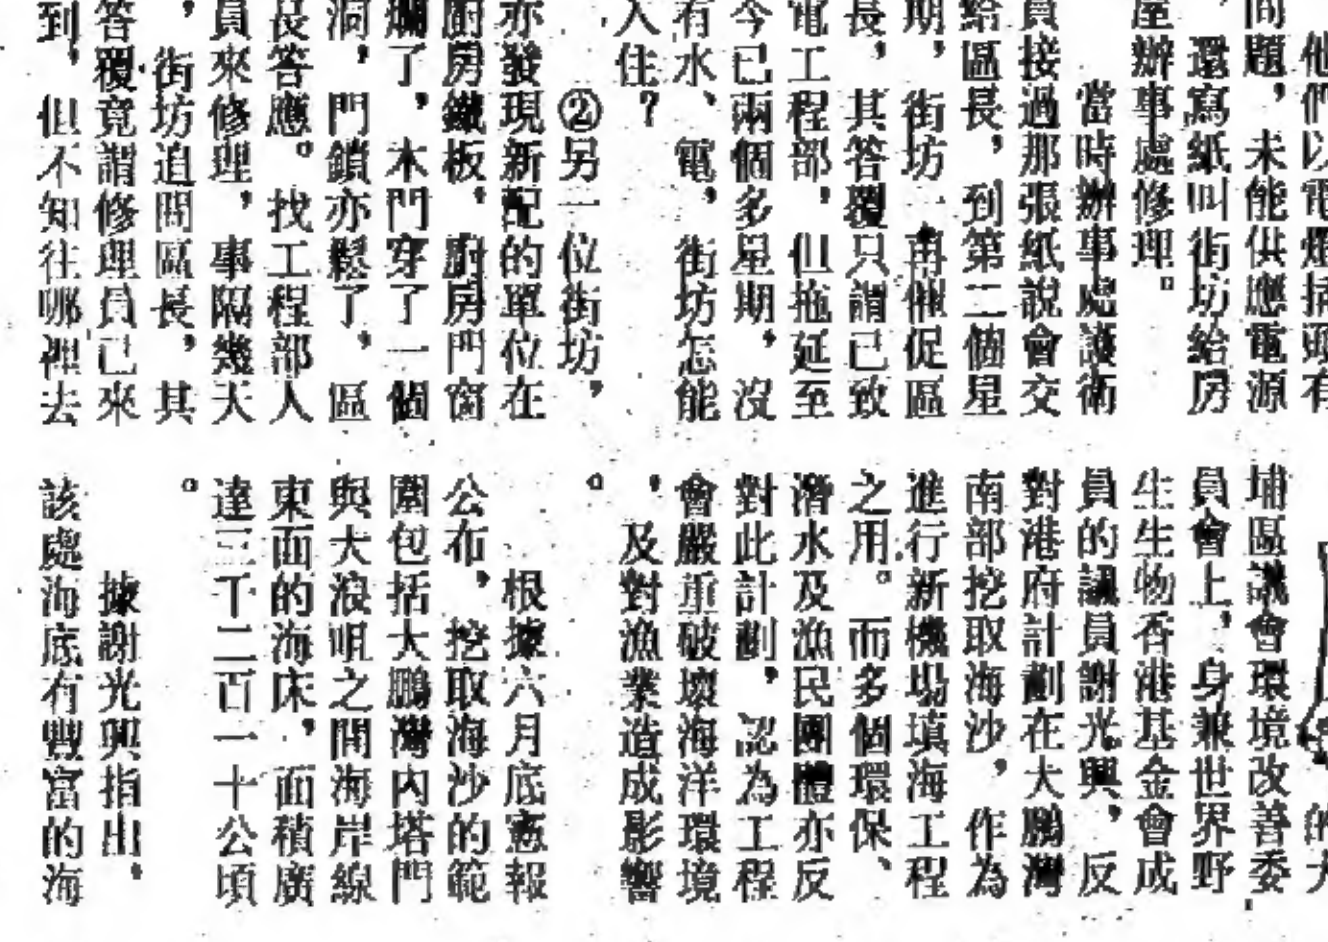 他們以電燈括頭有
問題，未能供應電源
，還寫紙叫街坊給房
屋辦事處修理。
當時辦事處護衛
員接過那張紙說會交
給區長，到第二個星
期，街坊一再催促區
長，其答覆只謂已致
電工程部，但拖延至
今已兩個多星期，沒
有水、電，街坊怎能
入住？
②另一位街坊，
亦發現新配的單位在
廚房鐵板，廚房門窗
爛了，木門穿了一個
洞，門鎖亦鬆了，區
長答應。找工程部人
員來修理，事隔幾天
，街坊追問區長，其
答覆竟謂修理員已來
到，但不知往哪裡去
的大
埔區議會環境改善委
員會上，身兼世界野
生生物香港基金會成
員的議員謝光興，反
對港府計劃在大鵬灣
南部挖取海沙，作為
進行新機場填海工程
之用。而多個環保、
潛水及漁民團體亦反
對此計劃，認為工程
會嚴重破壞海洋環境
，及對漁業造成影響
。
根據六月底憲報
公布，挖取海沙的範
圍包括大鵬灣內塔門
與大浪咀之間海岸線
東面的海床，面積廣
達三千二百一十公頃
。
據謝光興指出，
該處海底有豐富的海